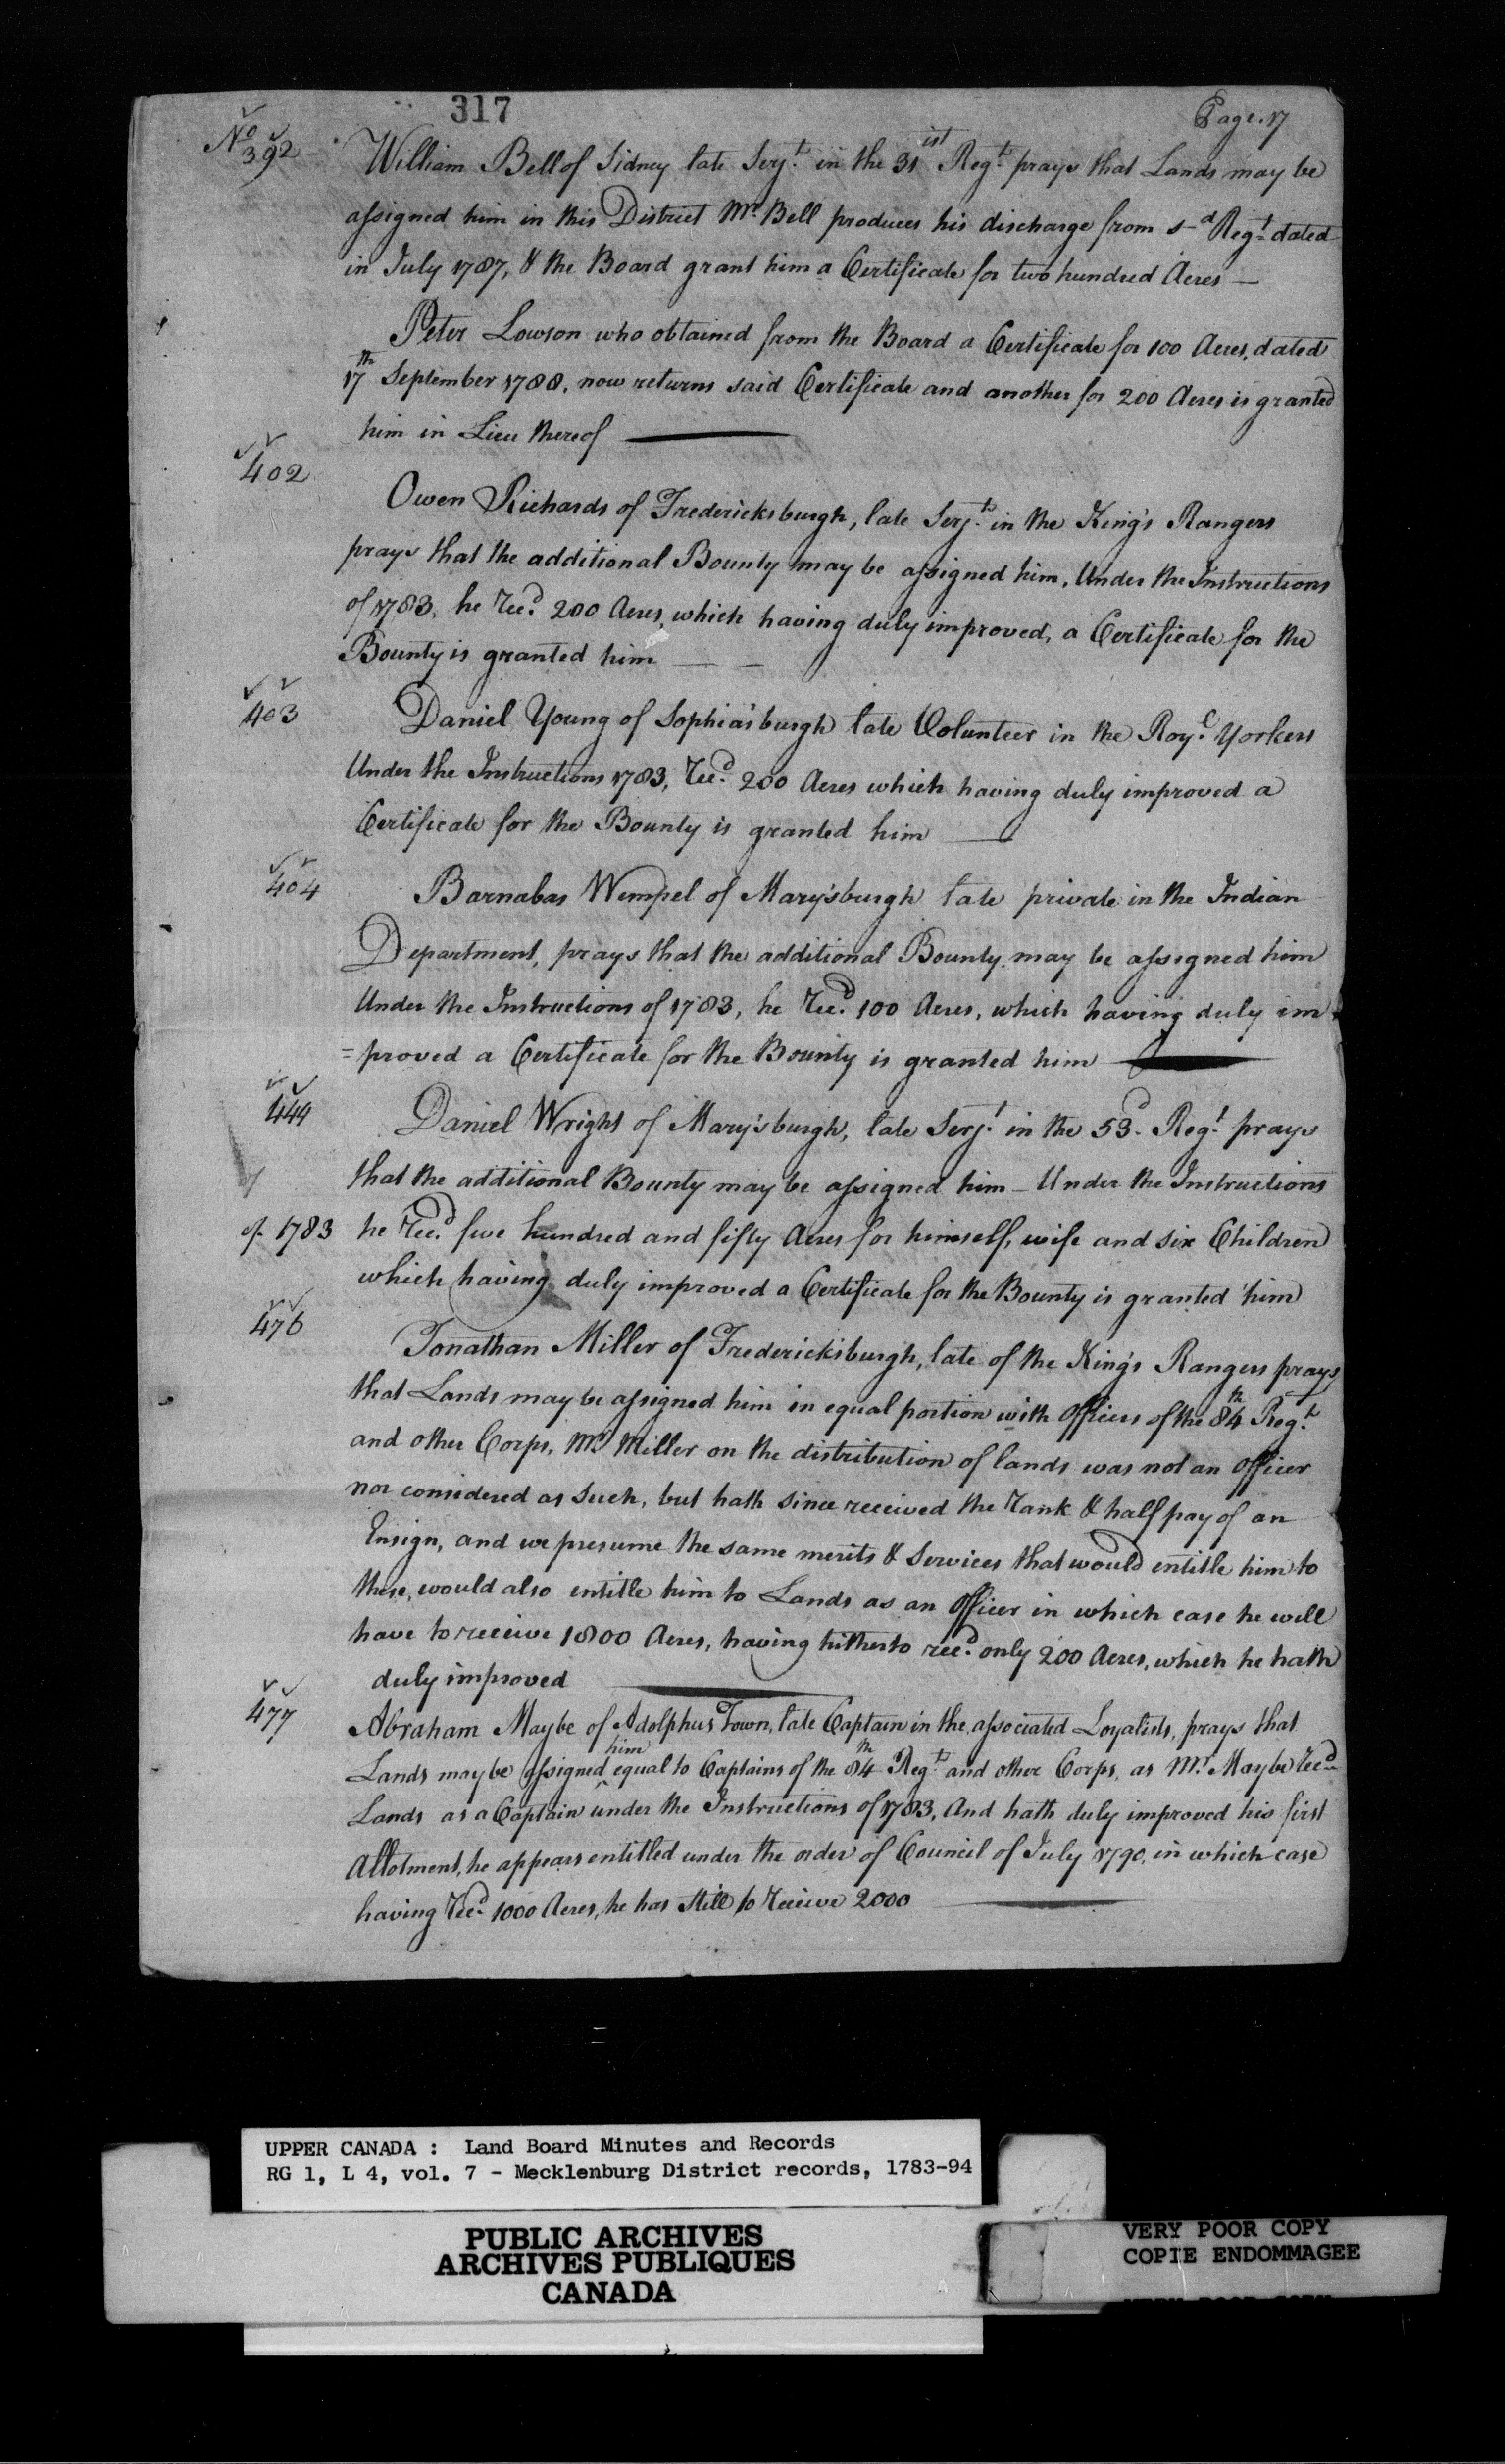 317
Page. 17
No 392
William Bell of Sidney late Serjt. in the 31ist Regt. prays that Lands may be
assigned him in this District Mr. Bell produces his discharge from sd Regt. dated
in July 1787, & the Board grant him a Certificate for two hundred Acres —
Peter Lowson who obtained from the Board a Certificate for 100 Acres, dated
17th September 1788, now returns said Certificate and another for 200 Acres is granted
him in Lieu thereof —
402
Owen Richards of Fredericksburgh, late Serjt. in the King's Rangers
prays that the additional Bounty may be assigned him, Under the Instructions
of 1783, he Recd. 200 Acres, which having duly improved, a Certificate for the
Bounty is granted him — —
403
Daniel Young of Sophia'sburgh late Volunteer in the Royl. Yorkers
Under the Instructions 1783, Recd. 200 Acres which having duly improved a
Certificate for the Bounty is granted him —
404
Barnabas Wempel of Mary'sburgh late private in the Indian
Department, prays that the additional Bounty may be assigned him
Under the Instructions of 1783, he Recd. 100 Acres, which having duly im=
=proved a Certificate for the Bounty is granted him —
449
Daniel Wright of Mary'sburgh, late Serjt. in the 53d. Regt. prays
that the additional Bounty may be assigned him — Under the Instructions
of 1783 he Recd. five hundred and fifty Acres for himself, wife and six Children
which having duly improved a Certificate for the Bounty is granted him
476
Jonathan Miller of Fredericksburgh, late of the King's Rangers prays
that Lands may be assigned him in equal portion with Officers of the 84th Regt.
and other Corps, Mr. Miller on the distribution of lands was not an Officer
nor considered as Such, but hath since received the Rank & half pay of an
Ensign, and we presume the same merits & Services that would entitle him to
these, would also entitle him to Lands as an Officer in which case he will
have to receive 1800 Acres, having hitherto recd. only 200 Acres, which he hath
duly improved —
477
Abraham Maybe of Adolphus Town, late Captain in the associated Loyalists, prays that
Lands may be assigned him equal to Captains of the 84th Regt. and other Corps, as Mr. Maybe Recd.
Lands as a Captain under the Instructions of 1783, And hath duly improved his first
Allotment, he appears entitled under the order of Council of July 1790, in which case
having Recd. 1000 Acres, he has still to Receive 2000 —
UPPER CANADA : Land Board Minutes and Records
RG 1, L 4, vol. 7 - Mecklenburg District records, 1783-94
PUBLIC ARCHIVES
ARCHIVES PUBLIQUES
CANADA
VERY POOR COPY
COPIE ENDOMMAGEE
VERY POOR COPY